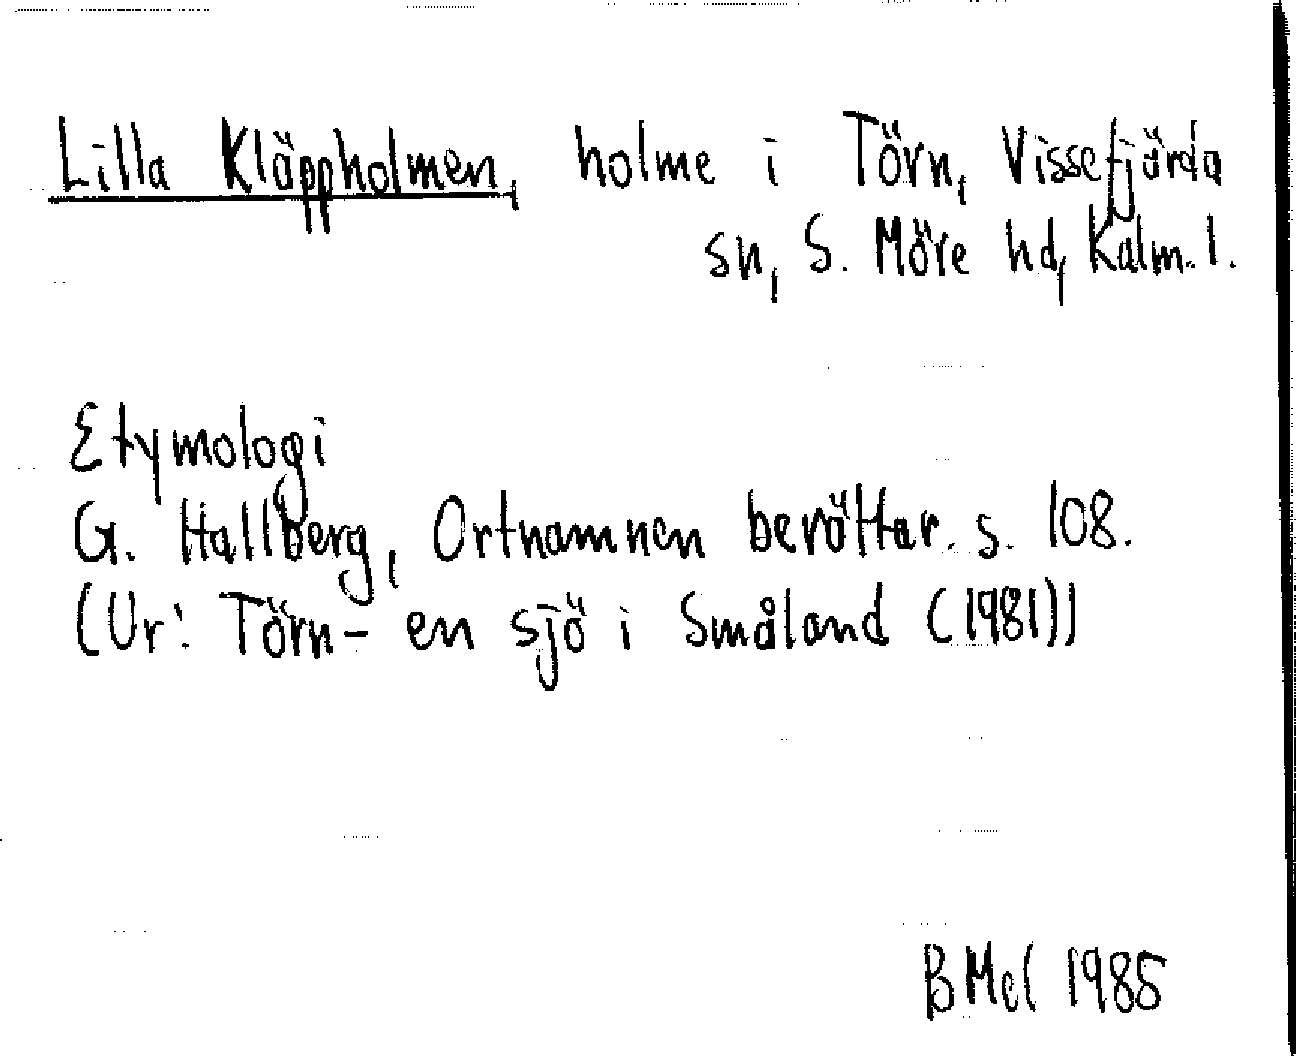 Lilla Kläppholmen, holme i Törn, Vissefjärda
sn, S. Möre hd, Kalm. l.
Etymologi
G. Hallberg, Ortnamnen berättar. s. 108.
(Ur: Törn - en sjö i Småland (1981))
BMel 1985